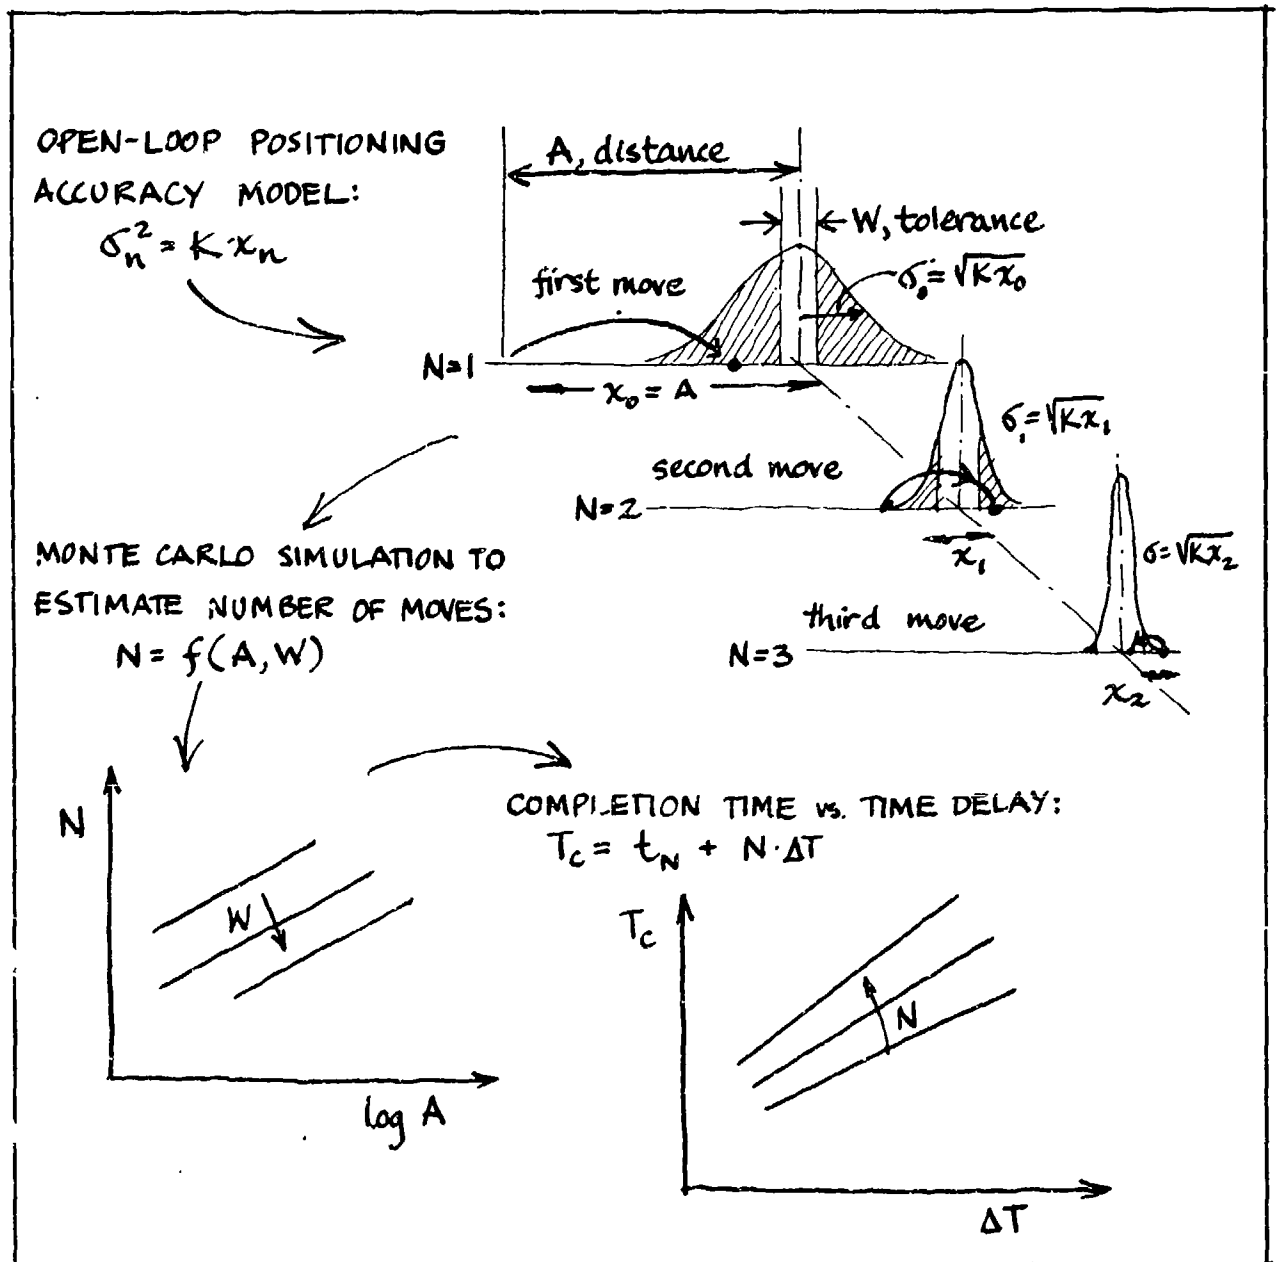 OPEN-LOOP POSITIONING
ACCURACY MODEL:
σₙ² = K·xₙ
A, distance
W, tolerance
first move
σ₀ = √Kx₀
N=1
x₀ = A
σ₁ = √Kx₁
second move
N=2
x₁
σ = √Kx₂
third move
N=3
x₂
MONTE CARLO SIMULATION TO
ESTIMATE NUMBER OF MOVES:
N = f(A, W)
N
W
log A
COMPLETION TIME vs. TIME DELAY:
T_c = t_N + N·ΔT
T_c
N
ΔT